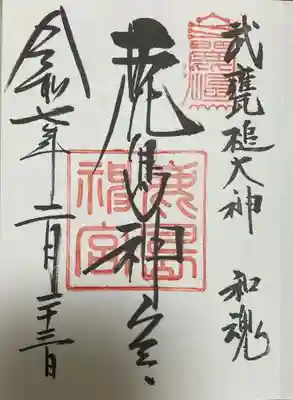 武甕槌大神 和魂
鹿島神宮
鹿島神宮
令和七年二月二十三日